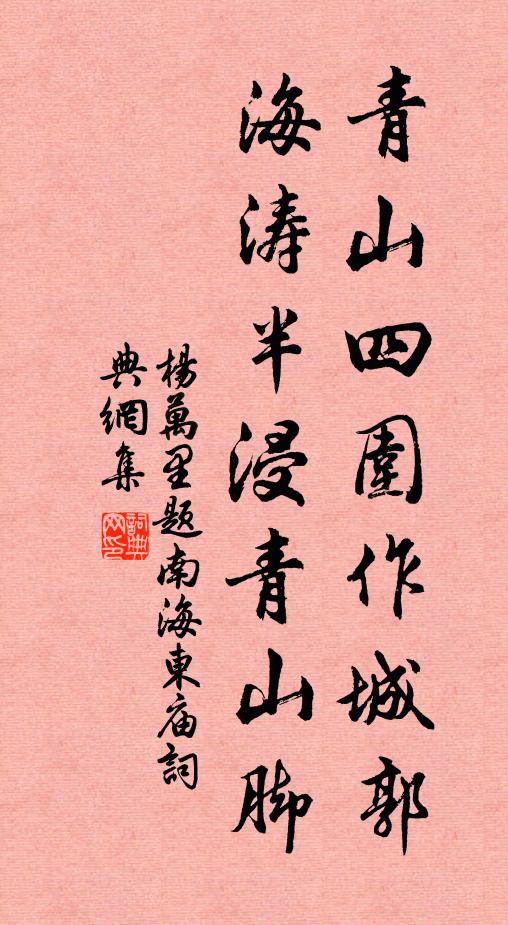 青山四圍作城郭
海涛半浸青山脚
楊萬里題南海東庙詞
典網集
詞典网印